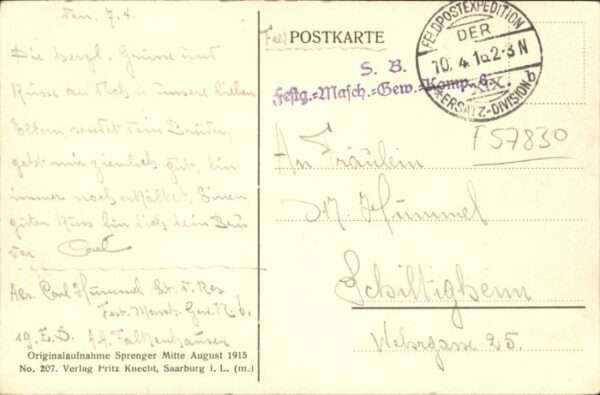 den 7.4.
Die herzl. Grüsse und
Küsse an Dich u unsere lieben
Eltern sendet dein Bruder,
geht mir ziemlich gut, bin
immer noch erkältet. Einen
guten Kuss für dich dein Bru
der Carl
Abs. Carl Hummel Lt. d. Res
Fest. Masch. Gew. K. 6.
19. E.D. A.A. Falkenhausen
Originalaufnahme Sprenger Mitte August 1915
No. 207. Verlag Fritz Knecht, Saarburg i. L. (m.)
Feld POSTKARTE
S. B.
Festg.=Masch.=Gew.=Komp. 6.
FELDPOSTEXPEDITION
DER
10. 4. 16. 2-3 N
XIX.
* ERSATZ-DIVISION b
F57830
An Fräulein
M. Hummel
Schiltigheim
Webergasse 25.